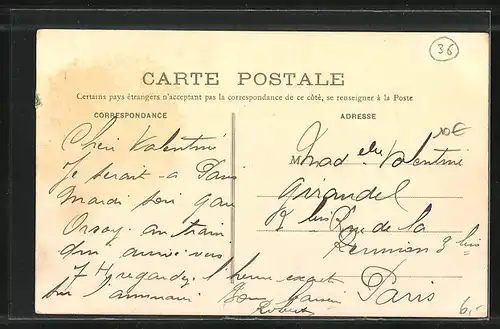 36
CARTE POSTALE
Certains pays étrangers n'acceptant pas la correspondance de ce côté, se renseigner à la Poste
CORRESPONDANCE
ADRESSE
10€
Cheri Valentine
Je serait a Paris
Mardi soir gare
Orsay. au train
qui arrive vers
7 H regardez l'heure exact
sur l'annuaire
Robert
Mad elle Valentine
Girandel
bis Rue de la
Reunion 3 bis
Paris
6,-